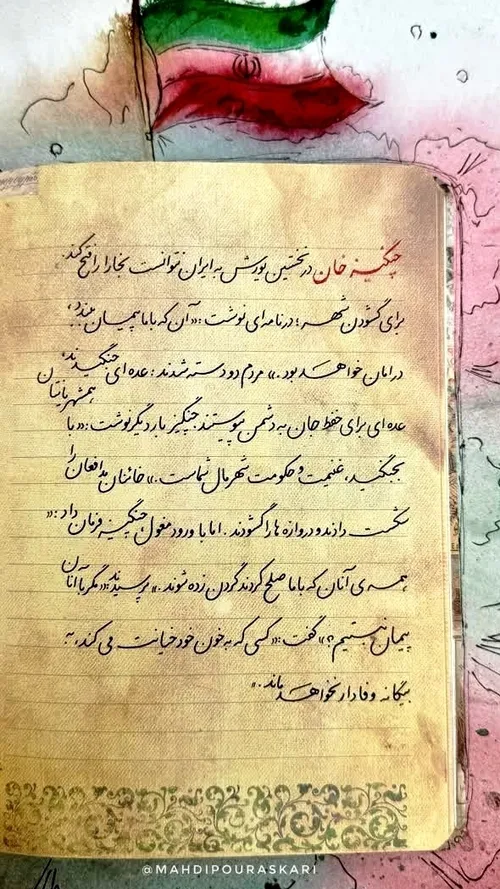 چنگیز خان در نخستین یورش به ایران نتوانست بخارا را فتح کند.
برای گشودن شهر؛ در نامه‌ای نوشت: «آن که با ما پیمان ببندد،
در امان خواهد بود.» مردم دو دسته شدند: عده‌ای جنگیدند،
عده‌ای برای حفظ جان به دشمن پیوستند. چنگیز بار دیگر نوشت: «با همشهریانتان
بجنگید، غنیمت و حکومت شهر مال شماست.» خائنان مدافعان را
شکست دادند و دروازه ها را گشودند. اما با ورود مغول، چنگیز فرمان داد: «
همه ی آنان که با ما صلح کردند گردن زده شوند.» پرسیدند: «مگر با آنان
پیمان نبستیم؟» گفت: «کسی که به خون خود خیانت می کند، به
بیگانه وفادار نخواهد ماند.»
@MAHDIPOURASKARI